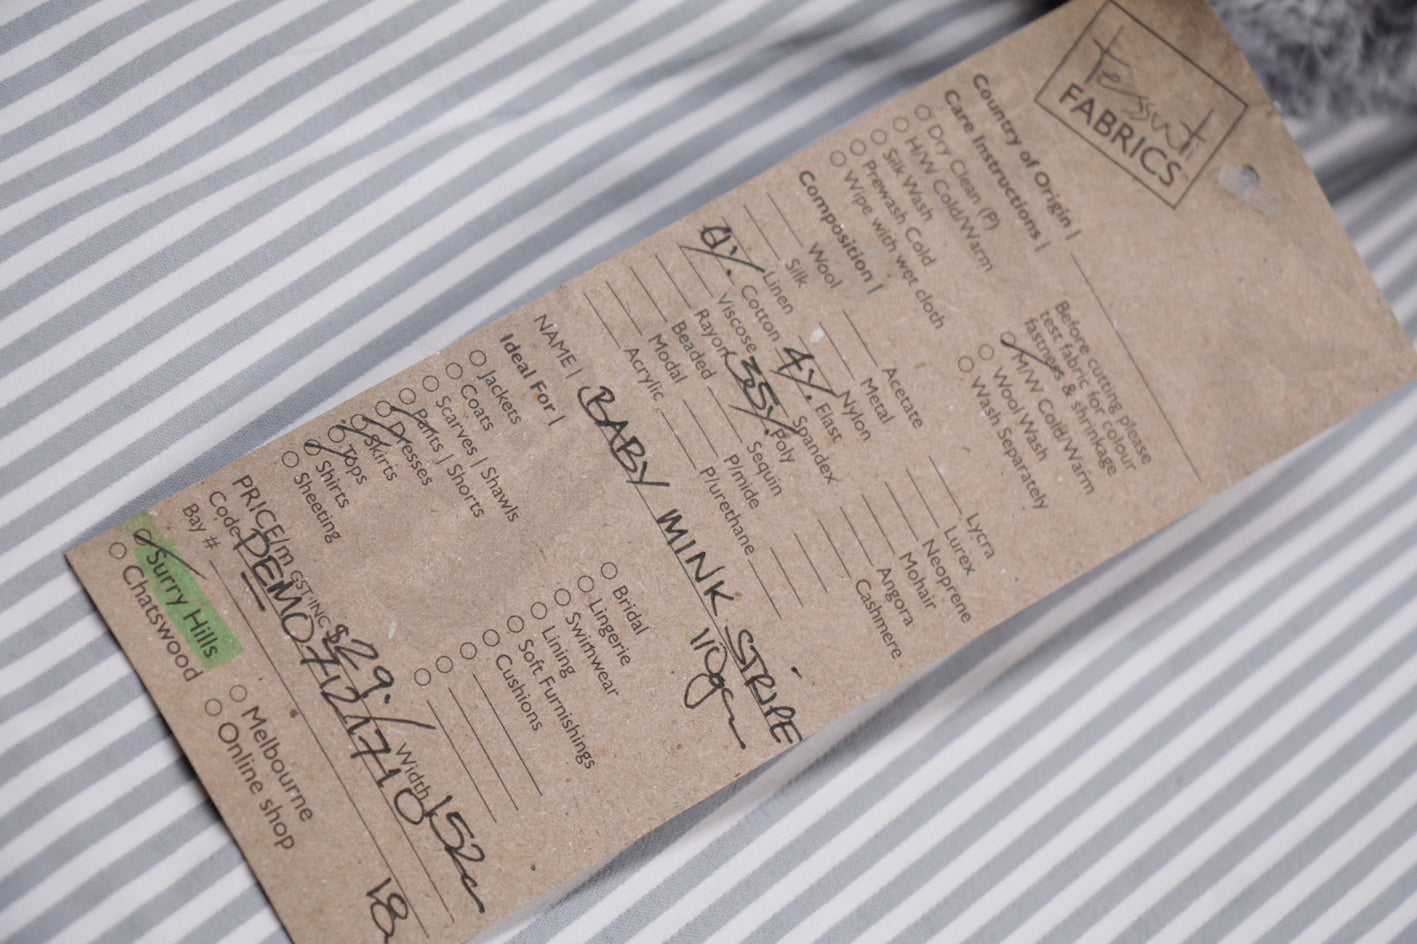 tessuti
FABRICS
Country of Origin |
Care Instructions |
Dry Clean (P)
H/W Cold/Warm
Silk Wash
Prewash Cold
Wipe with wet cloth
Before cutting please
test fabric for colour
fastness & shrinkage
M/W Cold/Warm
Wool Wash
Wash Separately
Composition |
Wool
Silk
Linen
61% Cotton
Viscose
Rayon
Beaded
Modal
Acrylic
Acetate
Metal
Nylon
4% Elast
Spandex
35% Poly
Sequin
P/mide
P/urethane
Lycra
Lurex
Neoprene
Mohair
Angora
Cashmere
NAME | BABY MINK STRIPE
110gsm
Ideal For |
Jackets
Coats
Scarves | Shawls
Pants | Shorts
Dresses
Skirts
Tops
Shirts
Sheeting
Bridal
Lingerie
Swimwear
Lining
Soft Furnishings
Cushions
PRICE/m GST INC $29./ Width 152c
Code DEMO7121710
Bay # 18
Surry Hills
Chatswood
Melbourne
Online shop